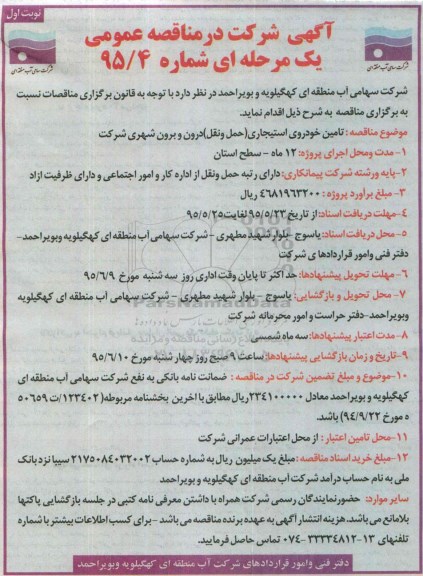 نوبت اول
آگهی شرکت در مناقصه عمومی
یک مرحله ای شماره ۹۵/۴
شرکت سهامی آب منطقه ای کهگیلویه و بویراحمد در نظر دارد با توجه به قانون برگزاری مناقصات نسبت
به برگزاری مناقصه به شرح ذیل اقدام نماید.
موضوع مناقصه : تامین خودروی استیجاری(حمل ونقل)درون و برون شهری شرکت
۱- مدت ومحل اجرای پروژه: ۱۲ ماه - سطح استان
۲-پایه ورشته شرکت پیمانکاری: دارای رتبه حمل ونقل از اداره کار و امور اجتماعی و دارای ظرفیت ازاد
۳- مبلغ برآورد پروژه : ۴۶۸۱۹۶۳۲۰۰ ریال
۴-مهلت دریافت اسناد: از تاریخ ۹۵/۵/۲۳ لغایت ۹۵/۵/۲۵
۵- محل دریافت اسناد: یاسوج -بلوار شهید مطهری - شرکت سهامی آب منطقه ای کهگیلویه وبویراحمد-
دفتر فنی وامور قراردادها ی شرکت
۶- مهلت تحویل پیشنهادها: حداکثر تا پایان وقت اداری روز سه شنبه مورخ ۹۵/۶/۹
۷- محل تحویل و بازگشایی: یاسوج - بلوار شهید مطهری - شرکت سهامی آب منطقه ای کهگیلویه
وبویراحمد-دفتر حراست و امور محرمانه شرکت
۸-مدت اعتبار پیشنهادها: سه ماه شمسی
۹-تاریخ و زمان بازگشایی پیشنهادها: ساعت ۹ صبح روز چهار شنبه مورخ ۹۵/۶/۱۰
۱۰-موضوع و مبلغ تضمین شرکت در مناقصه : ضمانت نامه بانکی به نفع شرکت سهامی آب منطقه ای
کهگیلویه و بویراحمد معادل ۲۳۴۱۰۰۰۰۰ ریال مطابق با اخرین بخشنامه مربوطه( ۱۲۳۴۰۲/ت ۵۰۶۵۹
ه مورخ ۹۴/۹/۲۲) باشد.
۱۱-محل تامین اعتبار : از محل اعتبارات عمرانی شرکت
۱۲-مبلغ خرید اسناد مناقصه :مبلغ یک میلیون ریال به شماره حساب ۲۱۷۵۰۸۴۰۳۲۰۰۲ سیبا نزد بانک
ملی به نام حساب درآمد شرکت آب منطقه ای کهگیلویه وبویراحمد
سایر موارد: حضور نمایندگان رسمی شرکت همراه با داشتن معرفی نامه کتبی در جلسه بازگشایی پاکتها
بلامانع می باشد. هزینه انتشار آگهی به عهده برنده مناقصه می باشد - برای کسب اطلاعات بیشتر با شماره
تلفنهای ۱۳-۳۳۳۳۴۸۱۲ -۰۷۴ تماس حاصل فرمایید.
دفتر فنی وامور قراردادهای شرکت آب منطقه ای کهگیلویه وبویراحمد